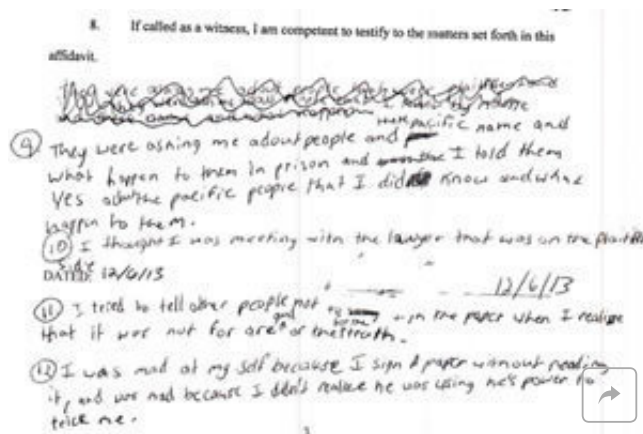 8. If called as a witness, I am competent to testify to the matters set forth in this
affidavit.
pacific name and
9 They were asking me adout people and
what happen to them in prison and I told them
Yes pacific people that I did know and what
happin to them.
10 I thought I was meeting with the lawyer that was on the
side
DATED: 12/6/13
12/6/13
11 I tried to tell other people not in the paper when I realize
that it wor not for are or the truth.
12 I was mad at my self because I sign A paper without reading
it, and wor mad because I didn't realize he was using he's power to
trick me.
3